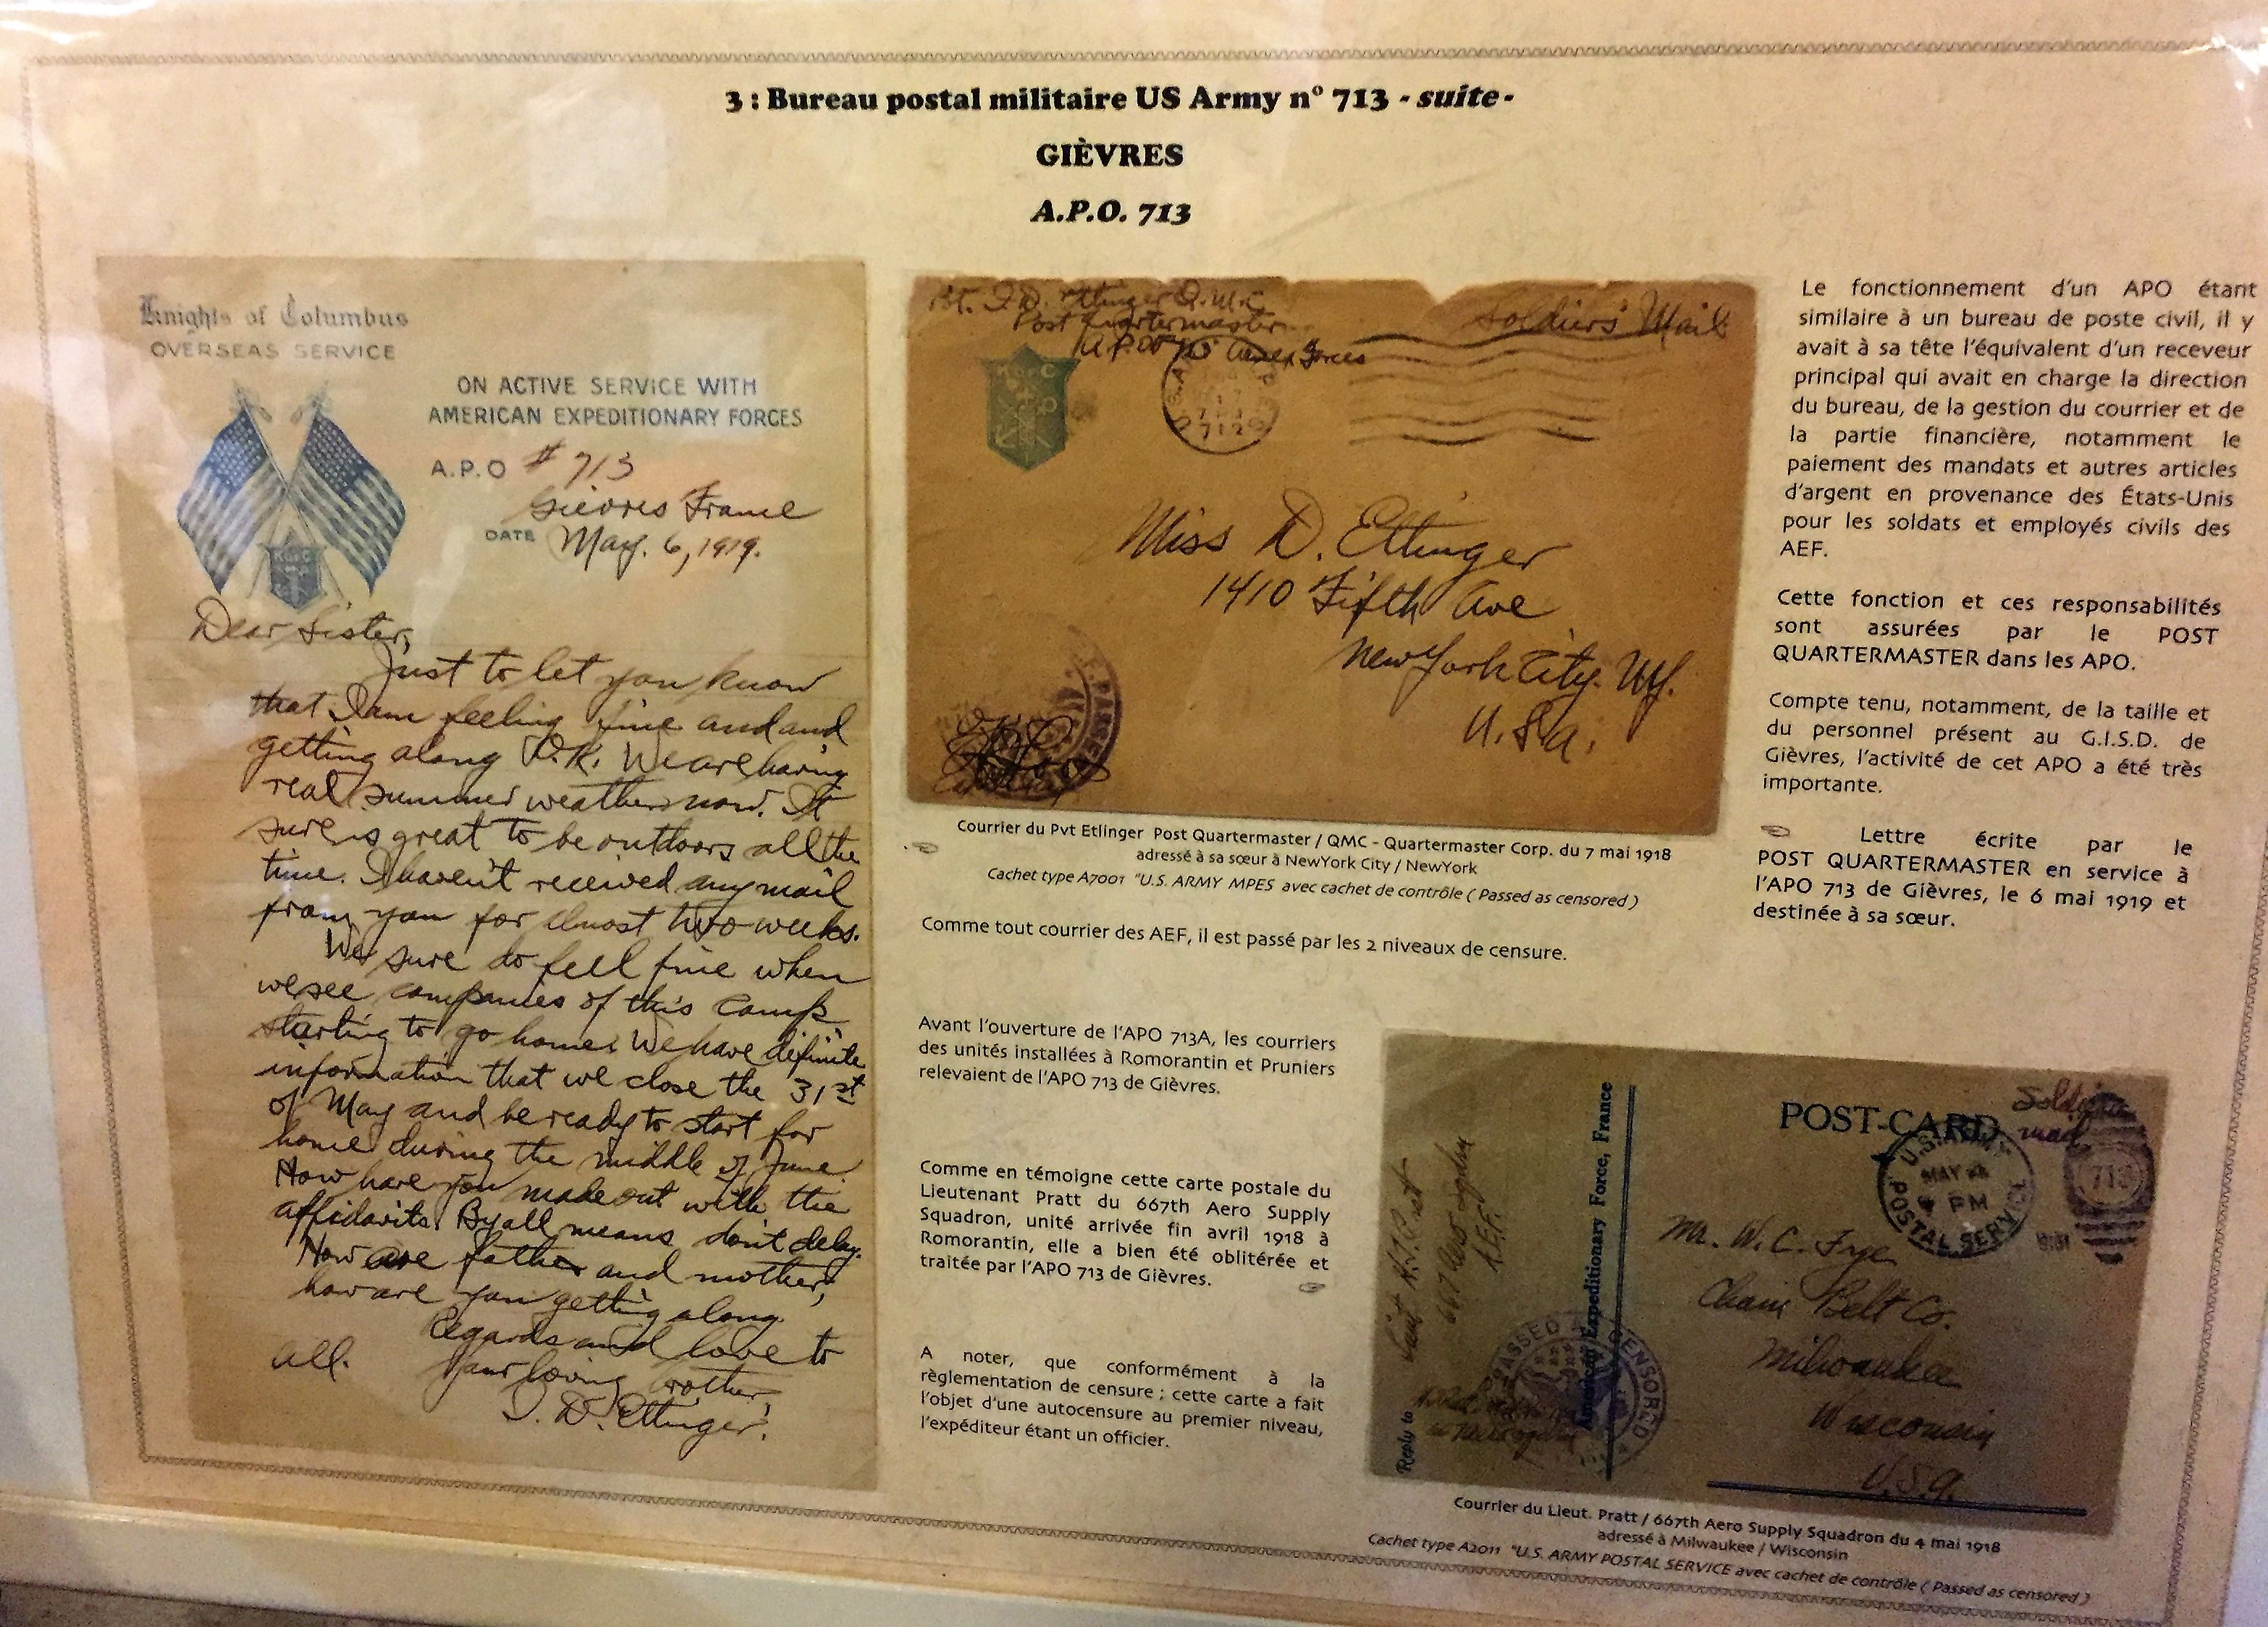 3 : Bureau postal militaire US Army n° 713 - suite -
GIÈVRES
A.P.O. 713
Knights of Columbus
OVERSEAS SERVICE
ON ACTIVE SERVICE WITH
AMERICAN EXPEDITIONARY FORCES
A.P.O # 713
Gievres France
DATE May. 6, 1919.
K of C
Dear Sister,
Just to let you know
that I am feeling fine and and
getting along O.K. We are having
real summer weather now. It
sure is great to be outdoors all the
time. I haven't received any mail
from you for almost two weeks.
We sure do feel fine when
we see companies of this camp
starting to go home. We have definite
information that we close the 31st
of May and be ready to start for
home during the middle of June.
How have you made out with the
affidavits. By all means don't delay.
How are father and mother,
how are you getting along
Regards and love to
all. Your loving brother,
I. D. Ettinger.
Pvt. I. D. Ettinger Q.M.C.
Post Quartermaster
A.P.O. Amex Forces
Soldiers' Mail
Miss D. Ettinger
1410 Fifth Ave
New York City. NY.
U.S.A.
Courrier du Pvt Etlinger Post Quartermaster / QMC - Quartermaster Corp. du 7 mai 1918
adressé à sa sœur à NewYork City / NewYork
Cachet type A7001 "U.S. ARMY MPES avec cachet de contrôle ( Passed as censored )
Comme tout courrier des AEF, il est passé par les 2 niveaux de censure.
Avant l'ouverture de l'APO 713A, les courriers
des unités installées à Romorantin et Pruniers
relevaient de l'APO 713 de Gièvres.
Comme en témoigne cette carte postale du
Lieutenant Pratt du 667th Aero Supply
Squadron, unité arrivée fin avril 1918 à
Romorantin, elle a bien été oblitérée et
traitée par l'APO 713 de Gièvres.
A noter, que conformément à la
règlementation de censure ; cette carte a fait
l'objet d'une autocensure au premier niveau,
l'expéditeur étant un officier.
Le fonctionnement d'un APO étant
similaire à un bureau de poste civil, il y
avait à sa tête l'équivalent d'un receveur
principal qui avait en charge la direction
du bureau, de la gestion du courrier et de
la partie financière, notamment le
paiement des mandats et autres articles
d'argent en provenance des États-Unis
pour les soldats et employés civils des
AEF.
Cette fonction et ces responsabilités
sont assurées par le POST
QUARTERMASTER dans les APO.
Compte tenu, notamment, de la taille et
du personnel présent au G.I.S.D. de
Gièvres, l'activité de cet APO a été très
importante.
Lettre écrite par le
POST QUARTERMASTER en service à
l'APO 713 de Gièvres, le 6 mai 1919 et
destinée à sa sœur.
POST-CARD
Soldiers
mail
U.S. ARMY
MAY
PM
POSTAL SERVICE
713
Mr. W. C. Frye
Chain Belt Co.
Milwaukee
Wisconsin
U.S.A.
American Expeditionary Force, France
Reply to
667 Aero Sqdn
A.E.F.
PASSED AS CENSORED
Courrier du Lieut. Pratt / 667th Aero Supply Squadron du 4 mai 1918
adressé à Milwaukee / Wisconsin
Cachet type A2011 "U.S. ARMY POSTAL SERVICE avec cachet de contrôle ( Passed as censored )